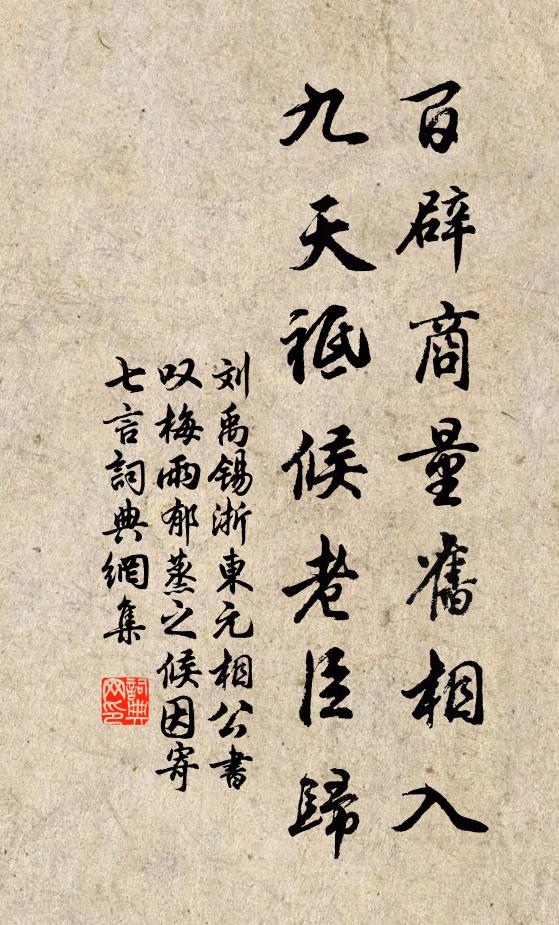 百辟商量舊相入
九天祗候老臣歸
刘禹锡浙東元相公書
叹梅雨郁蒸之候因寄
七言詞典網集
詞典网印